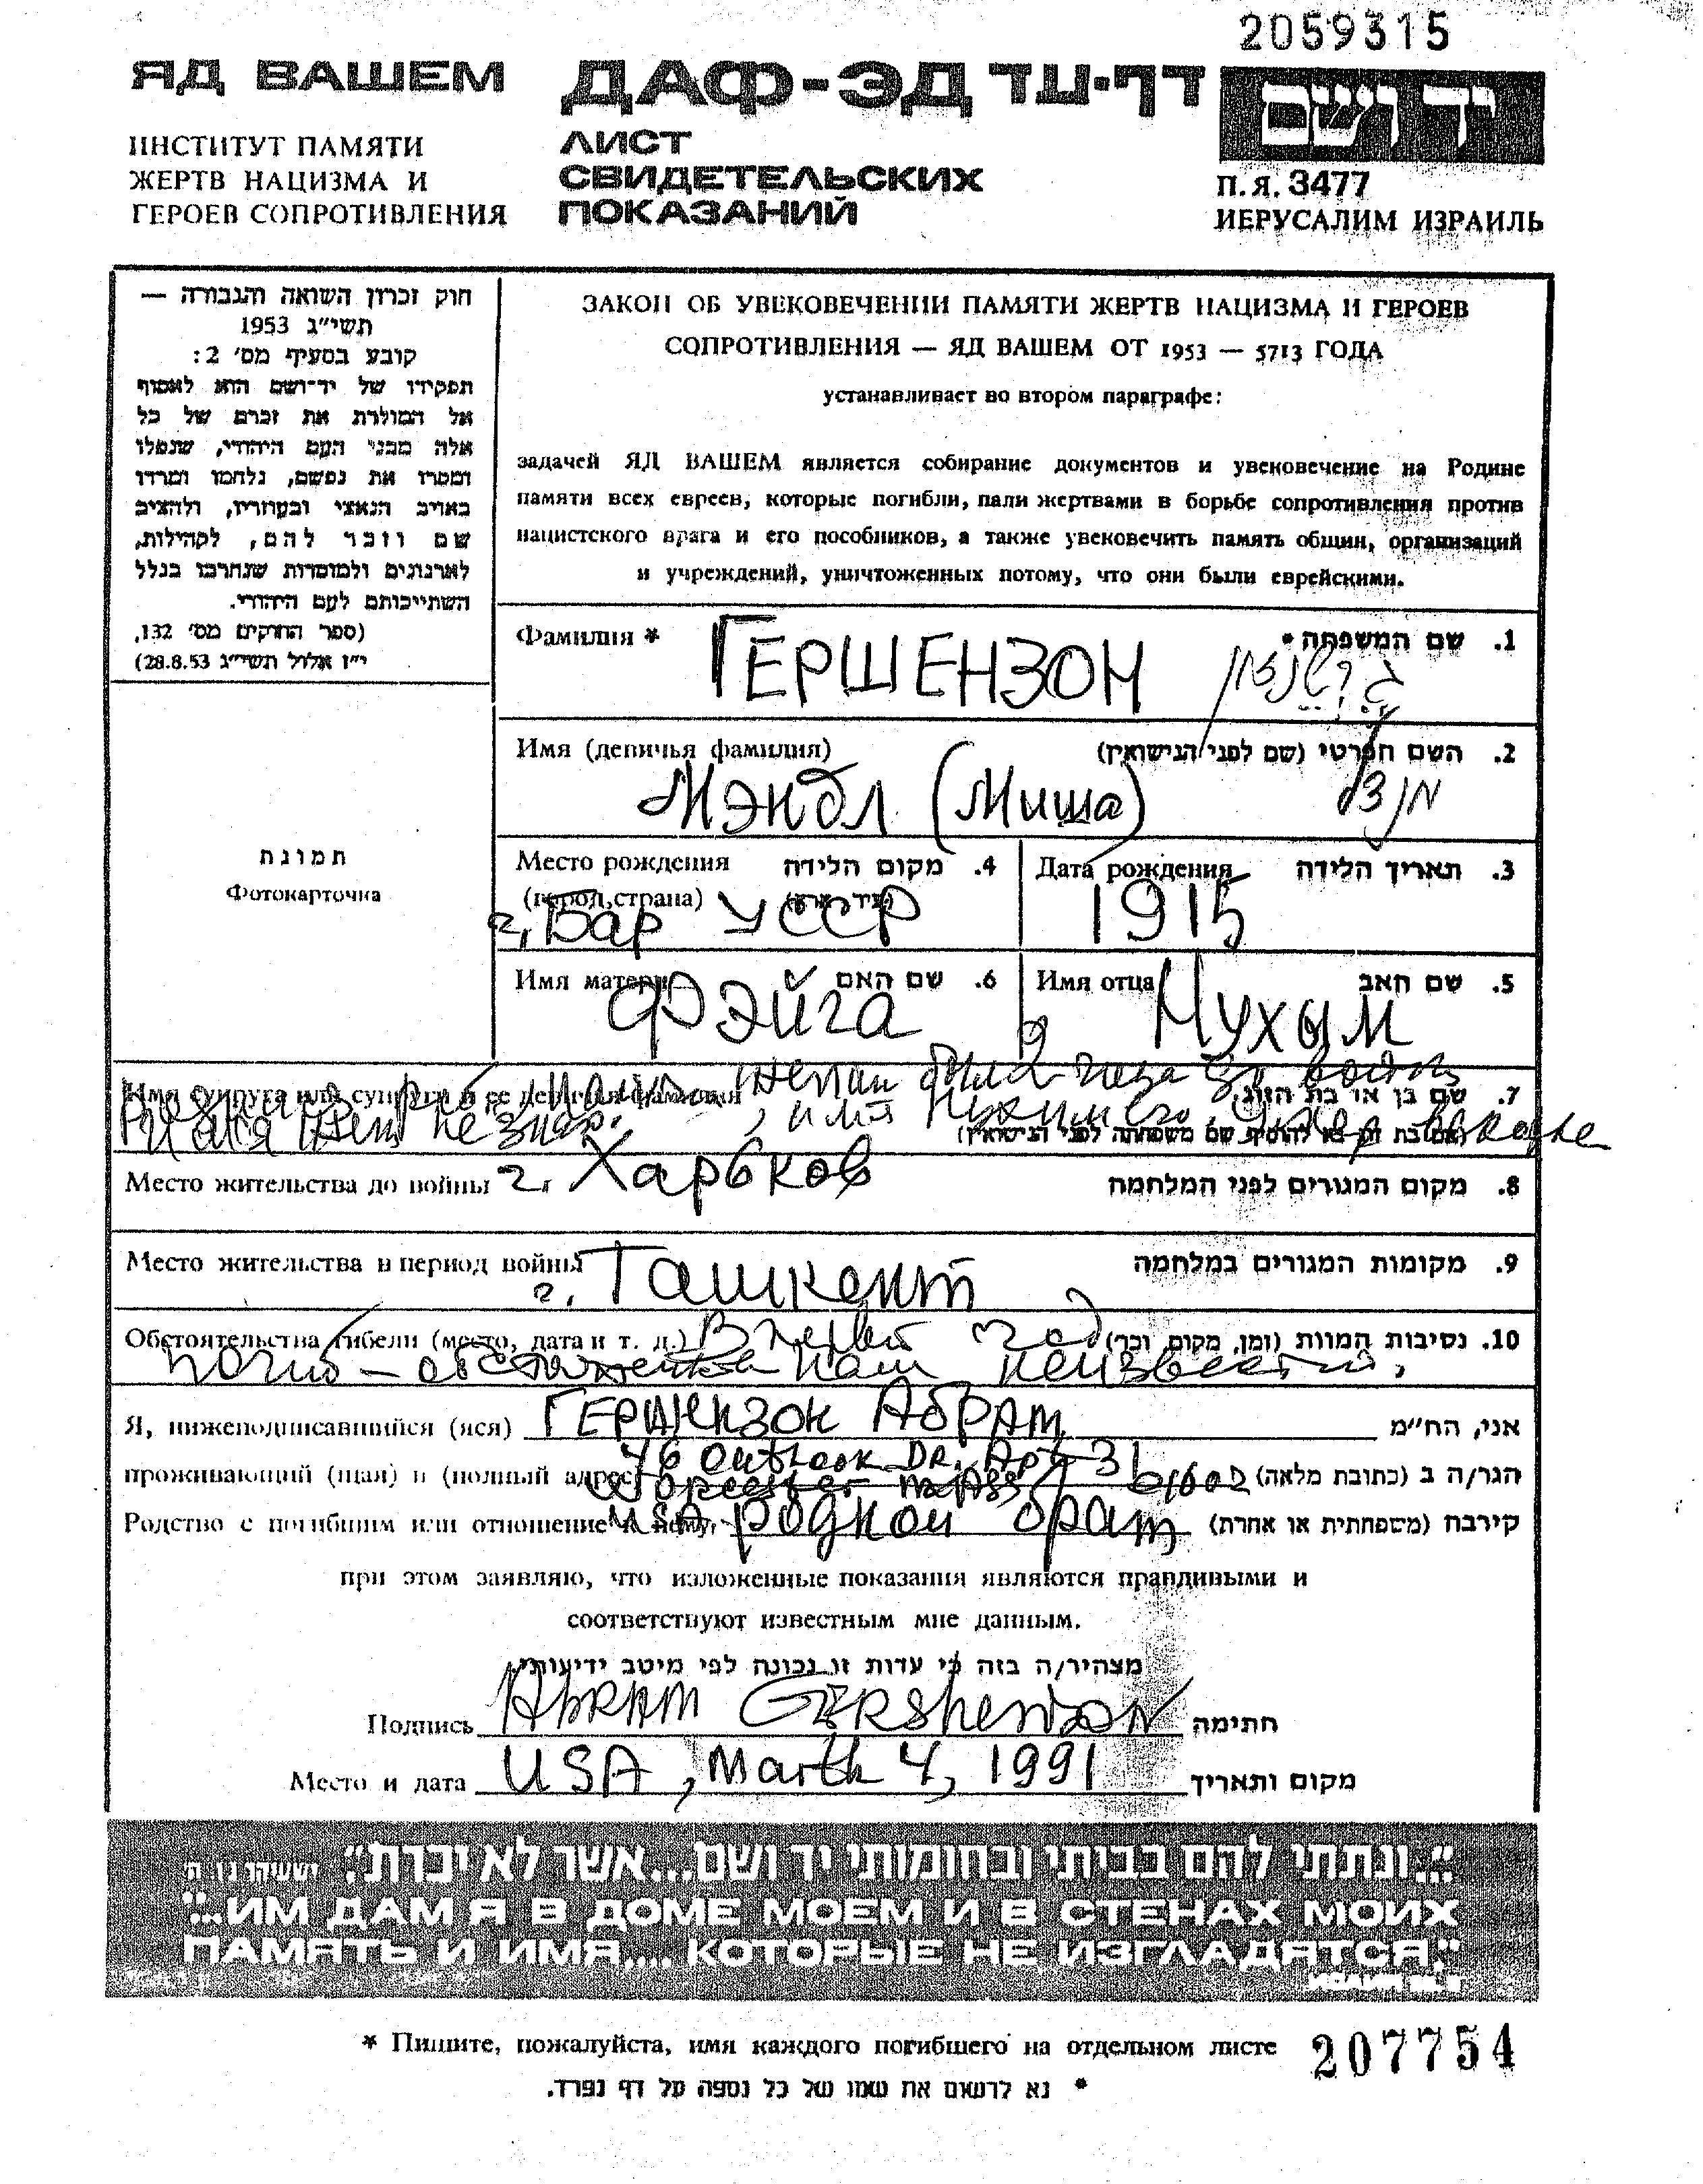 2059315
ЯД ВАШЕМ
ДАФ-ЭД דף-עד
יד ושם
ИНСТИТУТ ПАМЯТИ
ЖЕРТВ НАЦИЗМА И
ГЕРОЕВ СОПРОТИВЛЕНИЯ
ЛИСТ
СВИДЕТЕЛЬСКИХ
ПОКАЗАНИЙ
П.Я. 3477
ИЕРУСАЛИМ ИЗРАИЛЬ
חוק זכרון השואה והגבורה —
תשי״ג 1953
קובע בסעיף מס׳ 2:
תפקידו של יד-ושם הוא לאסוף
אל המולדת את זכרם של כל
אלה מבני העם היהודי, שנפלו
ומסרו את נפשם, נלחמו ומרדו
באויב הנאצי ובעוזריו, ולהציב
שם וזכר להם, לקהילות,
לארגונים ולמוסדות שנחרבו בגלל
השתייכותם לעם היהודי.
(ספר החוקים מס׳ 132,
י״ז אלול תשי״ג 28.8.53)
ЗАКОН ОБ УВЕКОВЕЧЕНИИ ПАМЯТИ ЖЕРТВ НАЦИЗМА И ГЕРОЕВ
СОПРОТИВЛЕНИЯ — ЯД ВАШЕМ ОТ 1953 — 5713 ГОДА
устанавливает во втором параграфе:
задачей ЯД ВАШЕМ является собирание документов и увековечение на Родине
памяти всех евреев, которые погибли, пали жертвами в борьбе сопротивления против
нацистского врага и его пособников, а также увековечить память общин, организаций
и учреждений, уничтоженных потому, что они были еврейскими.
Фамилия * ГЕРШЕНЗОН גרשנזון 1. שם המשפחה*
Имя (девичья фамилия) 2. השם הפרטי (שם לפני הנישואין)
Мэндл (Миша) מנדל
תמונה
Фотокарточка
Место рождения 4. מקום הלידה
(город, страна)
г. Бар УССР
Дата рождения 3. תאריך הלידה
1915
Имя матери 6. שם האם
Фэйга
Имя отца 5. שם האב
Нухым
Имя супруга или супруги и ее девичья фамилия 7. שם בן או בת הזוג
(אם בת זוג נא להוסיף שם משפחתה לפני הנישואין)
Место жительства до войны г. Харьков 8. מקום המגורים לפני המלחמה
Место жительства в период войны 9. מקומות המגורים במלחמה
г. Ташкент
Обстоятельства гибели (место, дата и т. д.) В год 10. נסיבות המוות (זמן, מקום, וכו׳)
погиб – нам
Я, нижеподписавшийся (яся) ГЕРШЕНЗОН АБРАМ אני, הח״מ
76 Outlook DR. Apt 31
проживающий (щая) в (полный адрес) Worcester MASS 01602 הגר/ה ב (כתובת מלאה)
Родство с погибшим или отношение к нему USA родной брат קירבה (משפחתית או אחרת)
при этом заявляю, что изложенные показания являются правдивыми и
соответствуют известным мне данным.
מצהיר/ה בזה כי עדות זו נכונה לפי מיטב ידיעותי.
Подпись ABRAM GERShenzon חתימה
Место и дата USA, March 4, 1991 מקום ותאריך
״...ונתתי להם בביתי ובחומותי יד ושם...אשר לא יכרת״. ישעיהו נו, ה
"...ИМ ДАМ Я В ДОМЕ МОЕМ И В СТЕНАХ МОИХ
ПАМЯТЬ И ИМЯ,... КОТОРЫЕ НЕ ИЗГЛАДЯТСЯ."
* Пишите, пожалуйста, имя каждого погибшего на отдельном листе
207754
* נא לרשום את שמו של כל נספה על דף נפרד.